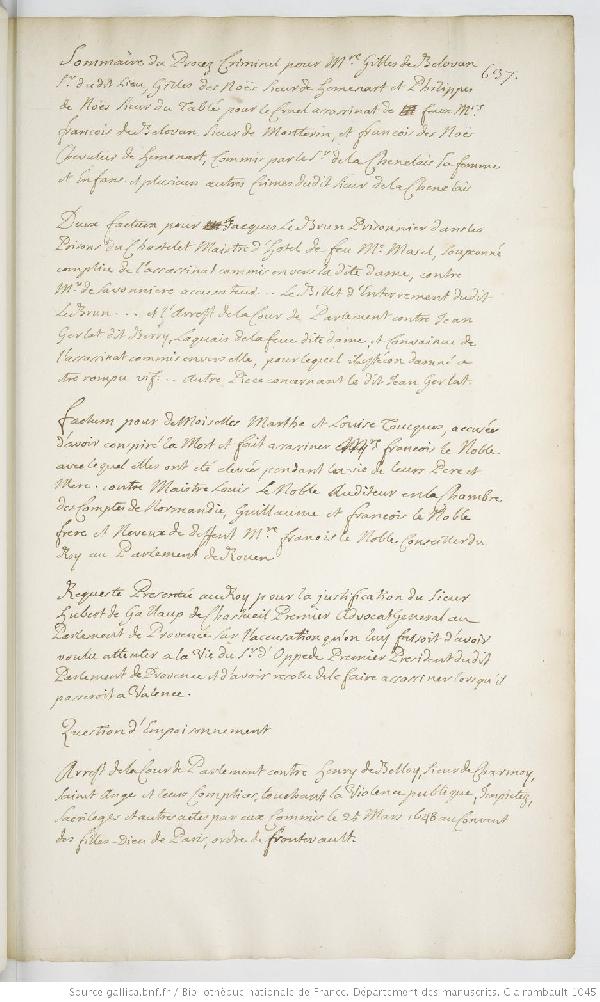 Sommaire du Procez Criminel pour Mre Gilles de Belovan
637.
Sr. du dit Lieu, Gilles des Noës Sieur de Homenart et Philippes
de Noës Sieur du Tablés pour le Cruel assassinat de feux Mrs
françois de Belovan Sieur de Monterin, et françois des Noës
Chevalier de Homenart, Commis par le Sr. de la Chenelais sa femme
et Enfans et plusieurs autres Crimes dudit Sieur de la Chenelais
Deux factum pour Jacques Le Brun Prisonnier dans les
Prisons du Chastelet Maistre d'Hotel de feu Me Masel, soupçonné
complice de l'assassinat commis envers la dite dame, contre
Mr. de Savonniere accusateur... Le Billet d'Enterrement dudit
Le Brun... et l'Arrest de la Cour de Parlement contre Jean
Gerlat dit Berry, Laquais de la feue dite dame, et Convaincu de
l'assassinat commis envers elle, pour lequel il a esté condamné a
etre rompu vif... autre Piece concernant le dit Jean Gerlat.
factum pour deMoiselles Marthe et Louise Toucques, accusées
d'avoir conspiré la Mort et fait assasiner Mre françois le Noble
avec lequel elles ont été elevés pendant la vie de leurs Pere et
Mere. contre Maistre Louis Le Noble Auditeur en la Chambre
des Comptes de Normandie, Guillaume et françois le Noble
frere et Neveux de deffunt Mre françois le Noble Conseiller du
Roy au Parlement de Rouen
Requeste Presentée au Roy pour la justification du Sieur
Hubert de Gallaup de Chasteuil Premier Advocat General au
Parlement de Provence sur l'accusation qu'on luy faisoit d'avoir
voulu attenter a la Vie du Sr. d'Oppede Premier President du dit
Parlement de Provence et d'avoir resolu de le faire assassiner lorsqu'il
passeroit a Valence.
Question d'Empoisonnement
Arrest de la Cour de Parlement contre Henry de Belloy, Sieur de Charmoy,
Saint Ange et leurs Complices, touchant la Violence publique, Impietez,
Sacrileges et autres actes par eux Commis le 24 Mars 1648 au Convent
des filles-Dieu de Paris, ordre de frontevault.
Source gallica.bnf.fr / Bibliothèque nationale de France. Département des manuscrits. Clairambault 1045